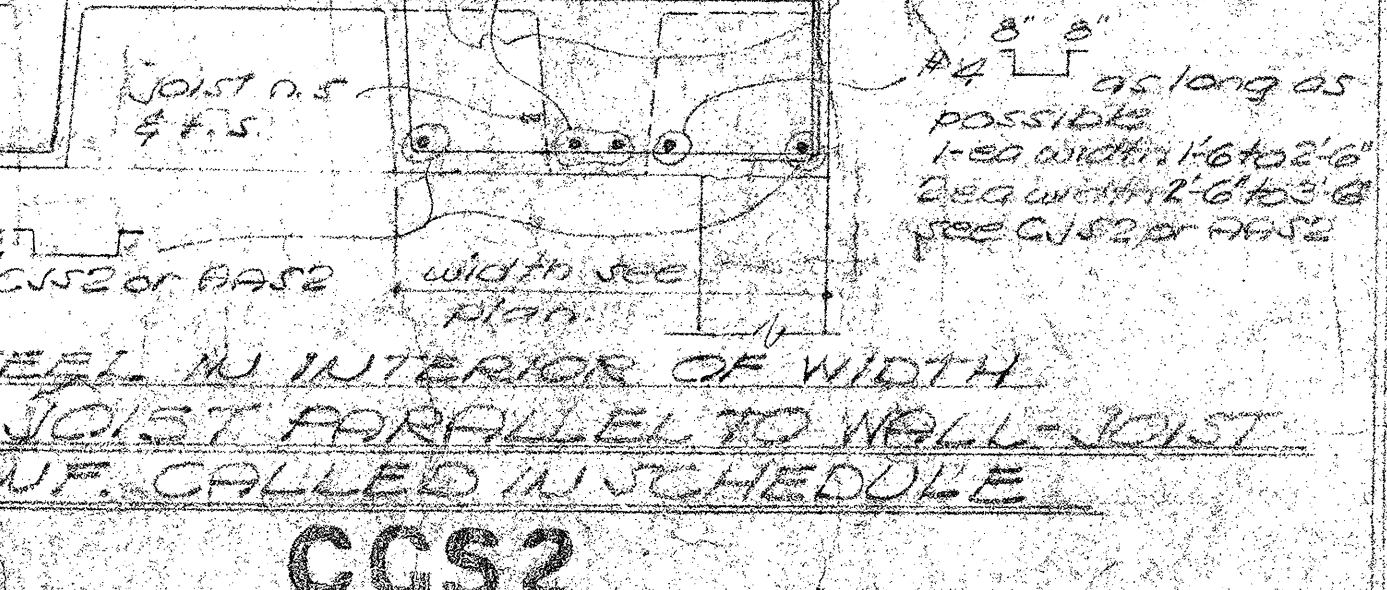 8" 8"
#4
as long as
possible
1-ea width 1'-6 to 2'-6"
2 ea width 2'-6" to 3'-6"
see CJS2 or AAS2
joist n.s
& f.s.
CJS2 or AAS2
width see
plan.
EEL IN INTERIOR OF WIDTH
JOIST PARALLEL TO WALL-JOIST
NF. CALLED IN SCHEDULE
CCS2